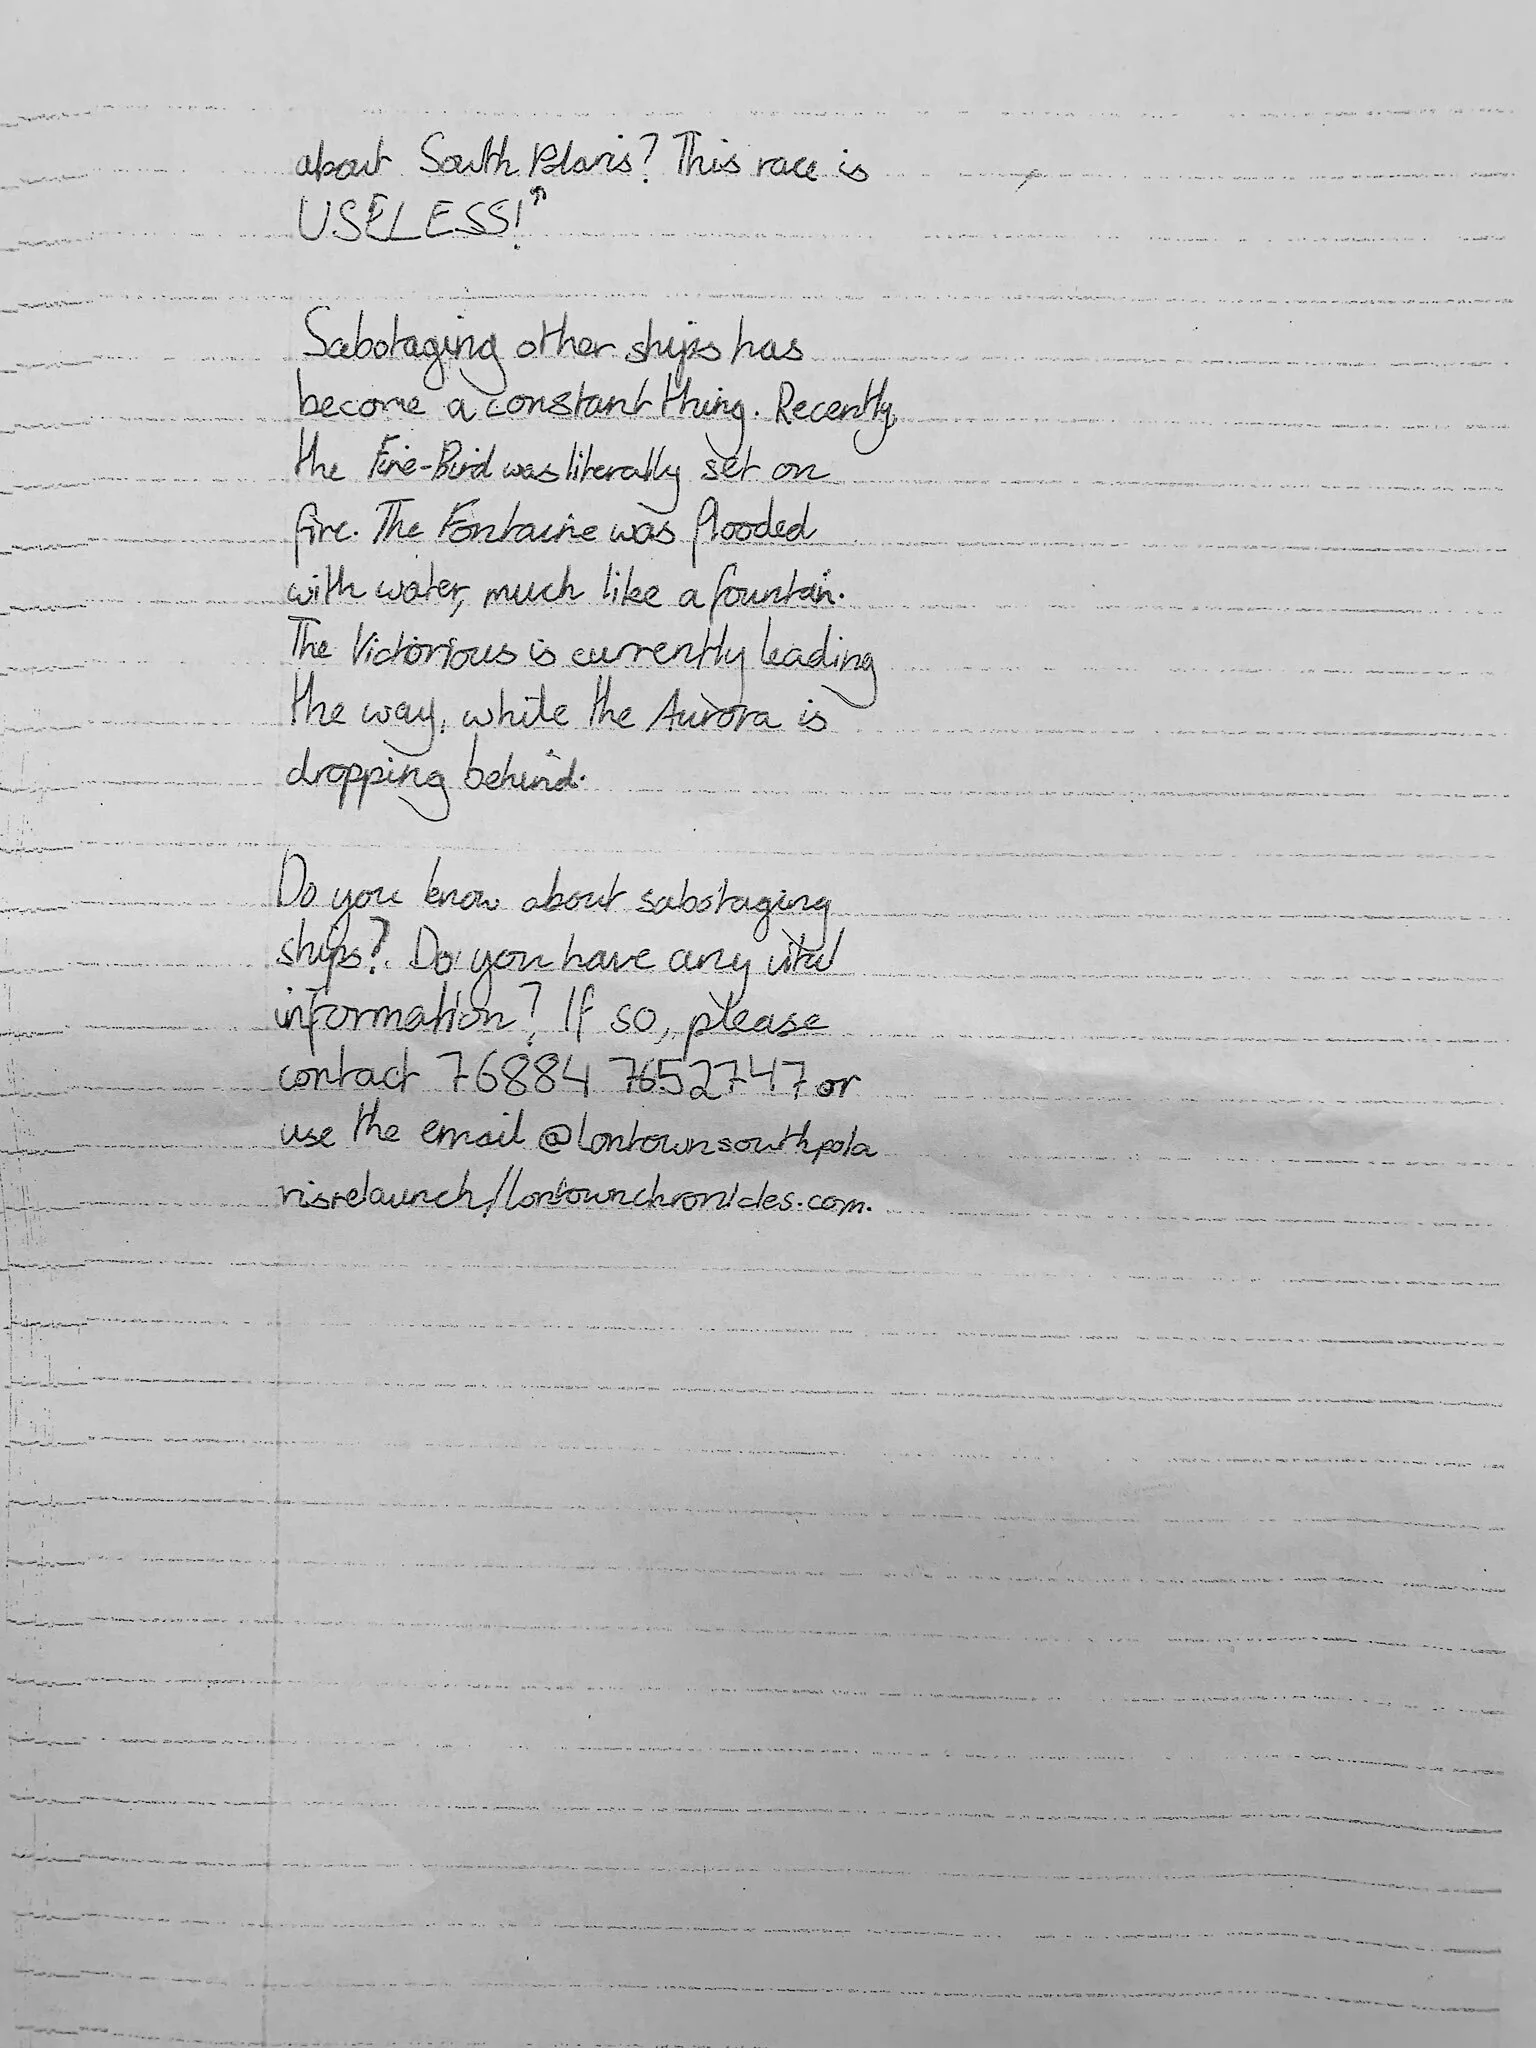 about South Polaris? This race is
USELESS!"
Sabotaging other ships has
become a constant thing. Recently,
the Fire-Bird was literally set on
fire. The Fontaine was flooded
with water, much like a fountain.
The Victorious is currently leading
the way, while the Aurora is
dropping behind.
Do you know about sabotaging
ships? Do you have any vital
information? If so, please
contact 76884 7652747 or
use the email @lontownsouthpola
risrelaunch/lontownchronicles.com.